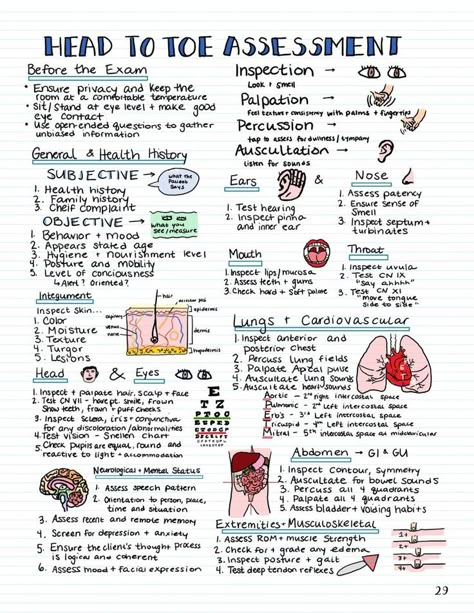 HEAD TO TOE ASSESSMENT
Before the Exam
• Ensure privacy and keep the
room at a comfortable temperature
• Sit/Stand at eye level + make good
eye contact
• Use open-ended questions to gather
unbiased information
Inspection →
Look + Smell
Palpation →
Feel texture + consistency with palms + fingertips
Percussion →
tap to assess for dullness / tympany
Auscultation →
listen for sounds
General & Health History
SUBJECTIVE →
what the Patient Says
1. Health history
2. Family history
3. Cheif complaint
OBJECTIVE →
what you see/measure
1. Behavior + mood
2. Appears stated age
3. Hygiene + nourishment level
4. Posture and mobility
5. Level of conciousness
↳ Alert? Oriented?
Ears
&
Nose
1. Test hearing
2. Inspect pinna
and inner ear
1. Assess patency
2. Ensure sense of
Smell
3. Inspect septum +
turbinates
Mouth
1. Inspect lips/mucosa
2. Assess teeth + gums
3. Check hard + soft palate
Throat
1. Inspect uvula
2. Test CN IX
"Say ahhhh"
3. Test CN XI
"move tongue
side to side"
Integument
Inspect Skin...
1. Color
2. Moisture
3. Texture
4. Turgor
5. Lesions
hair
epidermis
dermis
hypodermis
capillary
nerve
Lungs + Cardiovascular
1. Inspect anterior and
posterior Chest
2. Percuss lung fields
3. Palpate Apical pulse
4. Auscultate lung sounds
5. Auscultate heart sounds
Aortic - 2nd right intercostal space
Pulmonic - 2nd Left intercostal space
Erb's - 3rd Left intercostal space
Tricuspid - 4th Left intercostal space
Mitral - 5th intercostal space at midclavicular
Head
&
Eyes
1. Inspect + palpate hair, scalp + face
2. Test CN VII - have pt. smile, frown
Show teeth, frown + puff cheeks
3. Inspect Sclera, iris + conjunctiva
for any discoloration/abnormalities
4. Test vision - Snellen chart
5. Check pupils are equal, round and
reactive to light + accommodation
E
T Z
Neurological + Mental Status
1. Assess speech pattern
2. Orientation to person, place,
time and situation
3. Assess recent and remote memory
4. Screen for depression + anxiety
5. Ensure the client's thought process
is logical and coherent
6. Assess mood + facial expression
Abdomen → GI & GU
1. Inspect contour, symmetry
2. Auscultate for bowel sounds
3. Percuss all 4 quadrants
4. Palpate all 4 quadrants
5. Assess bladder + voiding habits
Extremities + Musculoskeletal
1. Assess ROM + muscle Strength
2. Check for + grade any edema
3. Inspect posture + gait
4. Test deep tendon reflexes
1+
2+
3+
4+
29